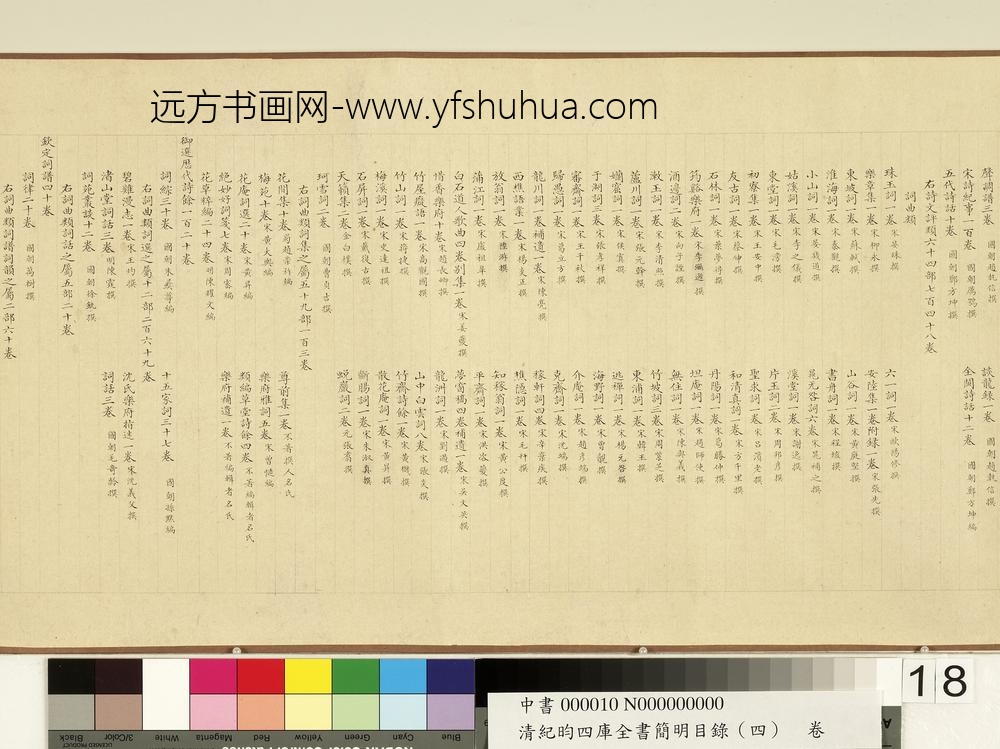 远方书画网-www.yfshuhua.com
聲調譜三卷 國朝趙執信撰
談龍錄一卷 國朝趙執信撰
宋詩紀事一百卷 國朝厲鶚撰
全閩詩話十二卷 國朝鄭方坤編
五代詩話十卷 國朝鄭方坤撰
右詩文評類六十四部七百四十八卷
詞曲類
珠玉詞一卷宋晏殊撰
六一詞一卷宋歐陽修撰
樂章集一卷宋柳永撰
安陸集一卷附錄一卷宋張先撰
東坡詞一卷宋蘇軾撰
山谷詞一卷宋黃庭堅撰
淮海詞一卷宋秦觀撰
書舟詞一卷宋程垓撰
小山詞一卷宋晏幾道撰
晁无咎詞六卷宋晁補之撰
姑溪詞一卷宋李之儀撰
溪堂詞一卷宋謝逸撰
東堂詞一卷宋毛滂撰
片玉詞二卷宋周邦彥撰
初寮集一卷宋王安中撰
聖求詞一卷宋呂濱老撰
友古詞一卷宋蔡伸撰
和清真詞一卷宋方千里撰
石林詞一卷宋葉夢得撰
丹陽詞一卷宋葛勝仲撰
筠谿樂府一卷宋李彌遜撰
坦庵詞一卷宋趙師使撰
酒邊詞二卷宋向子諲撰
無住詞一卷宋陳與義撰
漱玉詞一卷宋李清照撰
竹坡詞三卷宋周紫芝撰
蘆川詞一卷宋張元幹撰
東浦詞一卷宋韓玉撰
孏窟詞一卷宋侯寘撰
逃禪詞一卷宋楊无咎撰
于湖詞三卷宋張孝祥撰
海野詞一卷宋曾覿撰
審齋詞一卷宋王千秋撰
介庵詞一卷宋趙彥端撰
歸愚詞一卷宋葛立方撰
克齋詞一卷宋沈端撰
龍川詞一卷補遺一卷宋陳亮撰
稼軒詞四卷宋辛棄疾撰
西樵語業一卷宋楊炎正撰
樵隱詞一卷宋毛幵撰
放翁詞一卷宋陸游撰
知稼翁詞一卷宋黃公度撰
蒲江詞一卷宋盧祖皋撰
平齋詞一卷宋洪咨夔撰
白石道人歌曲四卷別集一卷宋姜夔撰
夢窗稿四卷補遺一卷宋吳文英撰
惜香樂府十卷宋趙長卿撰
龍洲詞一卷宋劉過撰
竹屋癡語一卷宋高觀國撰
山中白雲詞八卷宋張炎撰
竹山詞一卷宋蔣捷撰
竹齋詩餘一卷宋黃機撰
梅溪詞一卷宋史達祖撰
散花庵詞一卷宋黃昇撰
石屏詞一卷宋戴復古撰
斷腸詞一卷宋朱淑真撰
天籟集二卷金白樸撰
蛻巖詞二卷元張翥撰
珂雪詞二卷 國朝曹貞吉撰
右詞曲類詞集之屬五十九部一百三卷
花間集十卷蜀趙崇祚編
尊前集一卷不著撰人名氏
梅苑十卷宋黃大輿編
樂府雅詞五卷宋曾慥編
花庵詞選二十卷宋黃昇編
類編草堂詩餘四卷不著編輯者名氏
絕妙好詞箋七卷宋周密編
樂府補遺一卷不著編輯者名氏
花草稡編二十四卷明陳耀文編
御選歷代詩餘一百二十卷
詞綜三十卷 國朝朱彝尊編
十五家詞三十七卷 國朝孫默編
右詞曲類詞選之屬十二部二百六十九卷
碧雞漫志一卷宋王灼撰
沈氏樂府指迷一卷宋沈義父撰
渚山堂詞話二卷明陳霆撰
詞話三卷 國朝毛奇齡撰
詞苑叢談十二卷 國朝徐釚撰
右詞曲類詞話之屬五部二十卷
欽定詞譜四十卷
詞律二十卷 國朝萬樹撰
右詞曲類詞譜詞韻之屬二部六十卷
18
中書 000010 N000000000
清紀昀四庫全書簡明目錄（四） 卷
Black
3/Color
White
Magenta
Red
Yellow
Green
Cyan
Blue